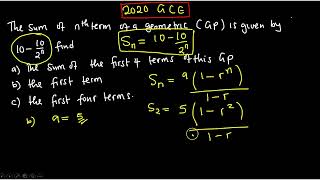 2020 GCE
The sum of nth term of a geometric (GP) is given by
10 - 10/2^n find Sn = 10 - 10/2^n
a) The sum of the first 4 terms of this GP
b) the first term
c) the first four terms.
b) a = 5
Sn = a(1 - r^n)
1 - r
S2 = 5(1 - r^2)
1 - r